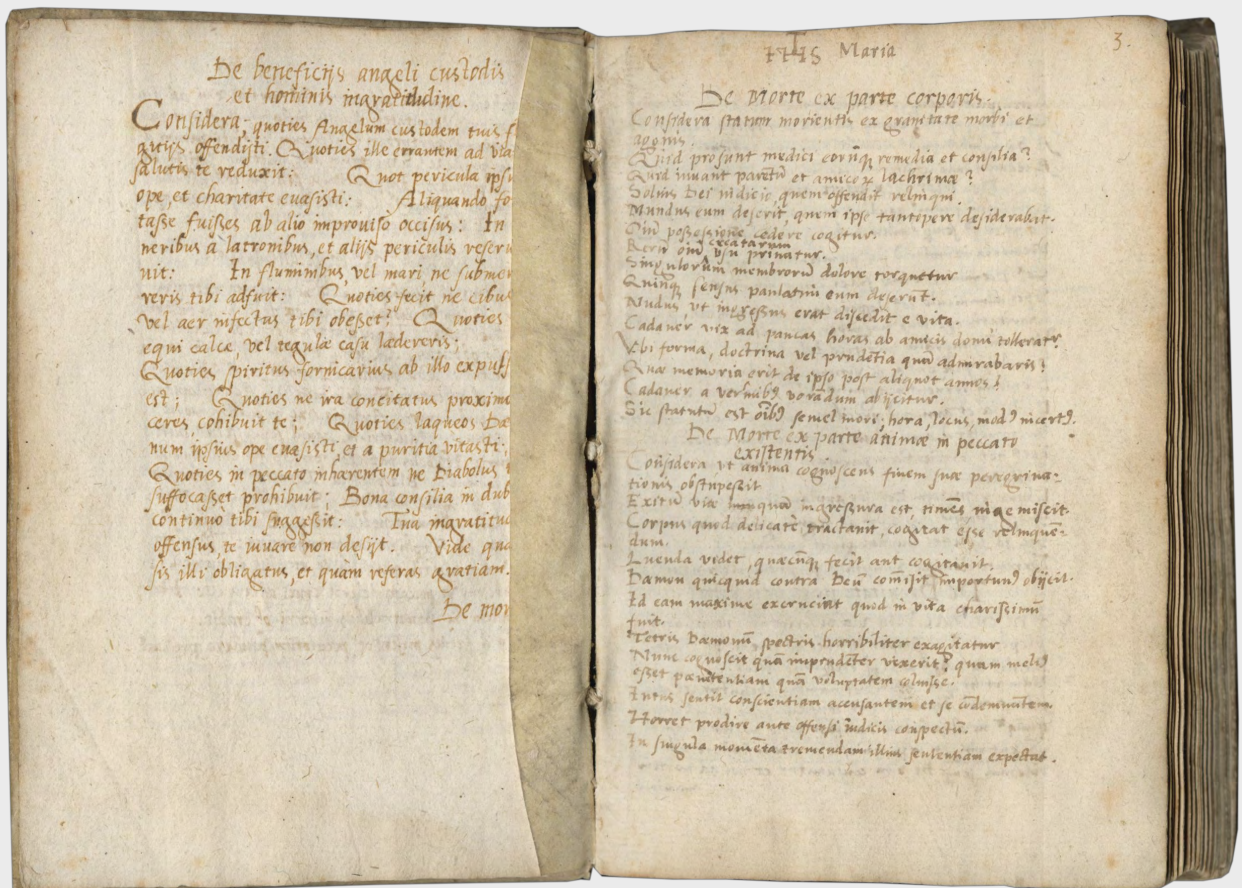 De beneficijs angeli custodis
et hominis ingratitudine.
Considera, quoties Angelum custodem tuis f
gitijs offendisti. Quoties ille errantem ad via
salutis te reduxit: Quot pericula ipsi
ope, et charitate euasisti: Aliquando for
tasse fuisses ab alio improuiso occisus: In
neribus à latronibus, et alijs periculis reseru
uit: In fluminibus, vel mari ne submer
reris tibi adfuit: Quoties fecit ne cibus
vel aer infectus tibi obesset? Quoties
equi calce, vel tegulæ casu læдereris;
Quoties spiritus fornicarius ab illo expuls
est; Quoties ne ira concitatus proximu
ceres, cohibuit te; Quoties laqueos Dæ
num ipsius ope euasisti, et a pueritia vitasti;
Quoties in peccato inhærentem ne Diabolus
suffocasset prohibuit; Bona consilia in dub
continuò tibi suggessit: Tua ingratitud
offensus, te iuuare non desijt. Vide qua
sis illi obligatus, et quàm referas gratiam.
De mor
3.
Maria
De Morte ex parte corporis.
Considera statum morientis ex grauitate morbi et
agonis.
Quid prosunt medici eorũq; remedia et consilia?
Quid iuuant parẽtũ et amicoꝝ lachrimæ?
Soluis Dei iudicio, quem offendit relinqui.
Mundus eum deserit, quem ipse tantopere desiderabat.
Oĩũ possessione cedere cogitur.
Rerũ oĩũ creatarum vsu priuatur.
Singulorum membrorũ dolore torquetur
Quinq; sensus paulatim eum deserũt.
Nudus, vt ingressus erat discedit e vita.
Cadauer vix ad paucas horas ab amicis domi tolleratr.
Vbi forma, doctrina vel prudẽtia quã admirabaris?
Quæ memoria erit de ipso post aliquot annos!
Cadauer a vermibꝰ vorãdum abijcitur.
Sic statutũ est oĩbꝰ semel mori, hora, locus, modꝰ incertꝰ.
De Morte ex parte animæ in peccato
existentis.
Considera vt anima cognoscens finem suæ peregrina-
tionis obstupescit
Exitũ viæ ingressura est, timẽs ingemiscit.
Corpus quod delicatè tractauit, cogitat esse relinquẽ-
dum.
Luenda videt, quæcũq; fecit aut cogitauit.
Dæmon quicquid contra Deũ comisit importunꝰ obijcit.
Id eam maxime excruciat quod in vita charissimũ
fuit.
Tetris Dæmonũ, spectris horribiliter exagitatur
Nunc cognoscit quã imprudẽter vixerit? quam meliꝰ
esset pœnitentiam quã voluptatem coluisse.
Intus sentit conscientiam accusantem et se cõdemnãtem.
Horret prodire ante offensi iudicis conspectũ.
In singula momẽta tremendam illius sententiam expectat.